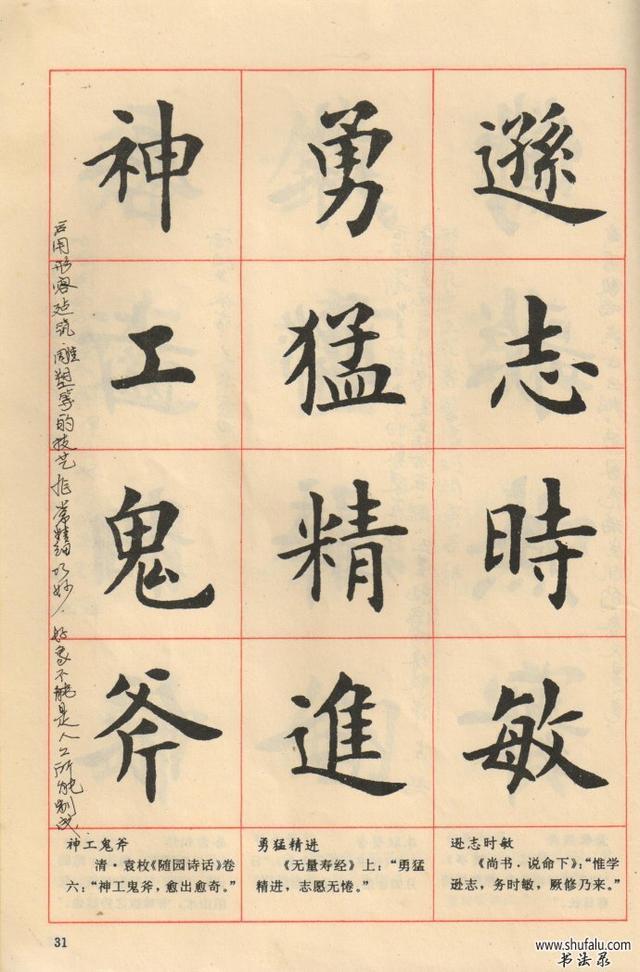 遜志時敏
勇猛精進
神工鬼斧
占用形容建筑雕塑等的技艺非常精细巧妙,好象不能是人工所能制成
逊志时敏
《尚书·说命下》:“惟学
逊志,务时敏,厥修乃来。”
勇猛精进
《无量寿经》上:“勇猛
精进,志愿无倦。”
神工鬼斧
清·袁枚《随园诗话》卷
六:“神工鬼斧,愈出愈奇。”
31
www.shufalu.com
书法录